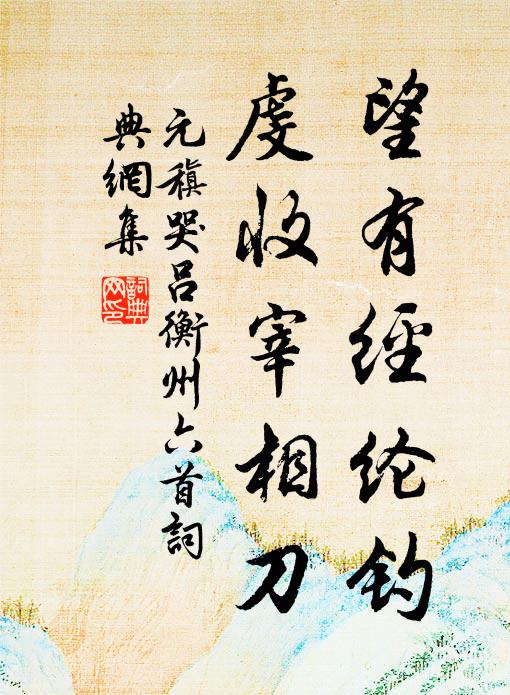 望有經纶钓
虔收宰相刀
元稹哭吕衡州六首詞
典網集
詞典
网印